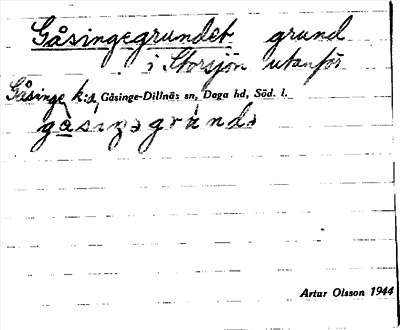 Gåsingegrundet grund
i Storsjön utanför
Gåsinge k:a, Gåsinge-Dillnäs sn, Daga hd, Söd. l.
gå̀siŋəgrúndə
Artur Olsson 1944